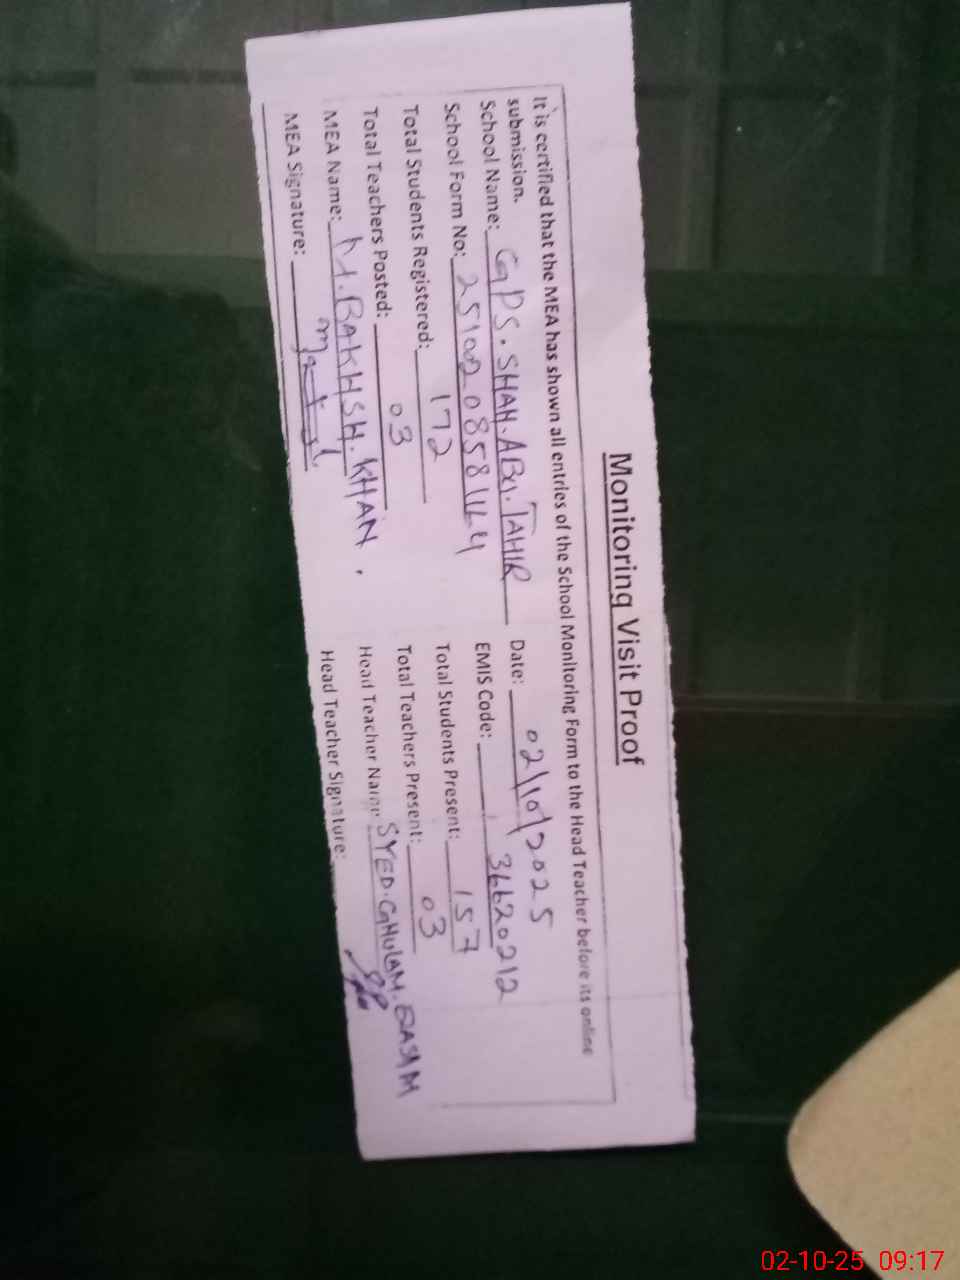 Monitoring Visit Proof
It is certified that the MEA has shown all entries of the School Monitoring Form to the Head Teacher before its online
submission.
School Name: GPS. SHAH. ABU. TAHIR Date: 02/10/2025
School Form No: EMIS Code: 36620212
Total Students Registered: 172 Total Students Present: 157
Total Teachers Posted: 03 Total Teachers Present: 03
MEA Name: M. BAKHSH. KHAN. Head Teacher Name SYED. GHULAM. QASIM
MEA Signature: Head Teacher Signature:
02-10-25 09:17